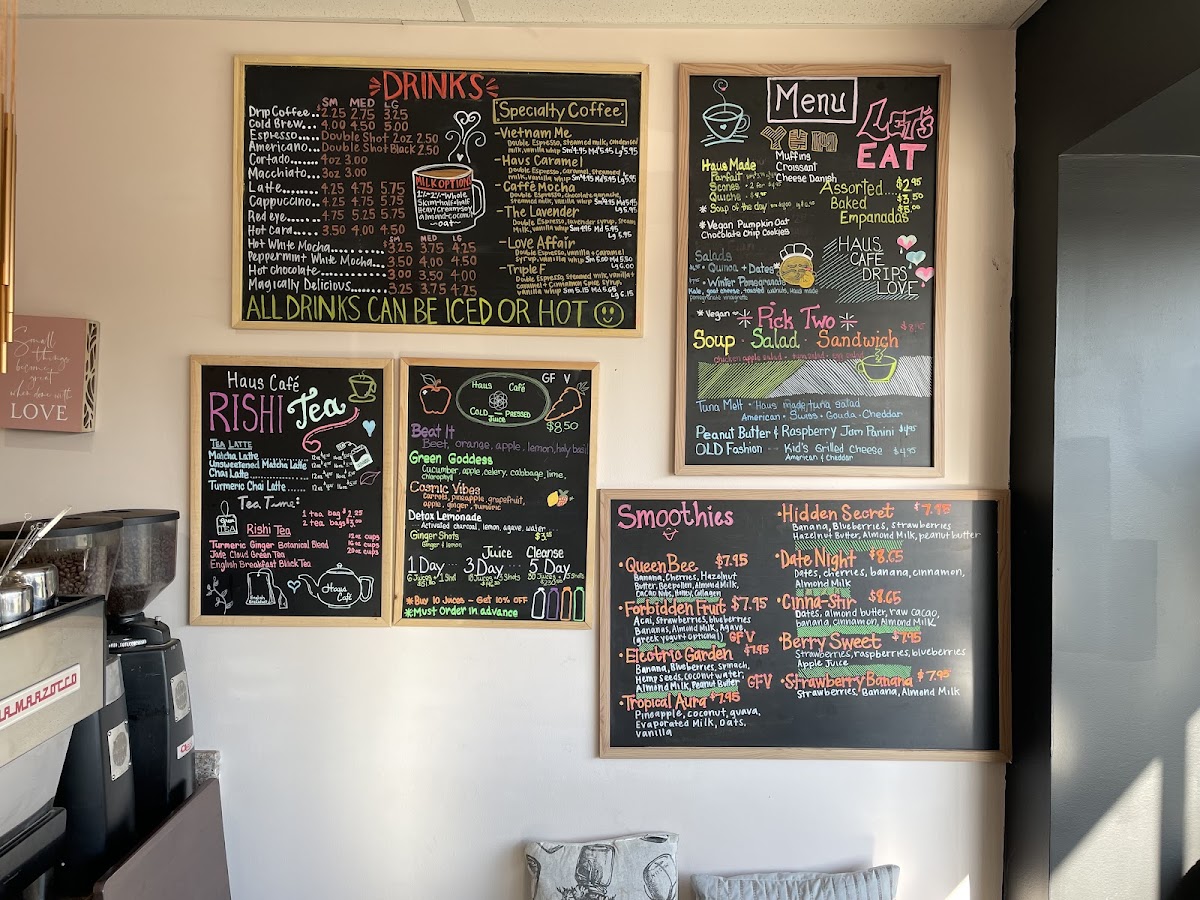 DRINKS
SM MED LG
Drip Coffee.. $2.25 2.75 3.25
Cold Brew... 4.00 4.50 5.00
Espresso..... Double Shot 2oz 2.50
Americano... Double Shot Black 2.50
Cortado..... 4oz 3.00
Macchiato... 3oz 3.00
Latte........ 4.25 4.75 5.75
Cappuccino.. 4.25 4.75 5.75
Red eye...... 4.75 5.25 5.75
Hot card.... 3.50 4.00 4.50
SM MED LG
Hot White Mocha.......... $3.25 3.75 4.25
Peppermint White Mocha.. 3.50 4.00 4.50
Hot chocolate............ 3.00 3.50 4.00
Magically Delicious....... 3.25 3.75 4.25
MILK OPTIONS
1% 2% Whole
Skim half+half
heavy cream soy
almond coconut
~oat~
Specialty Coffee
-Vietnam Me
Double Espresso, steamed milk, condensed
milk, vanilla whip Sm 4.95 Md 5.45 Lg 5.95
-Havs Caramel
Double Espresso, caramel, steamed
milk, vanilla whip Sm 4.95 Md 5.45 Lg 5.95
-Caffé Mocha
Double Espresso, chocolate ganache,
steamed milk, vanilla whip Sm 4.95 Md 5.45
Lg 5.95
-The Lavender
Double Espresso, lavender syrup, steam
milk, vanilla whip Sm 4.95 Md 5.45
Lg 5.95
-Love Affair
Double Espresso, vanilla + caramel
syrup, vanilla whip Sm 5.00 Md 5.50
Lg 6.00
-Triple F
Double Espresso, steamed milk, vanilla +
caramel + Cinnamon Spice syrup,
vanilla whip Sm 5.15 Md 5.65
Lg 6.15
ALL DRINKS CAN BE ICED OR HOT
Menu
LET'S
EAT
YUM
Haus Made
Parfait
Scones - 2 for
Quiche
* Soup of the day
Muffins
Croissant
Cheese Danish
* Vegan Pumpkin Oat
Chocolate Chip Cookies
Assorted.... $2.95
Baked $3.50
Empanadas $5.00
Salads
• Quinoa + Dates*
• Winter Pomegranate
Kale, goat cheese, toasted walnuts, Haus made
pomegranate vinaigrette
HAUS
CAFÉ
DRIPS
LOVE
* Vegan ~
Pick Two
Soup · Salad · Sandwich
chicken apple salad - tuna salad - egg salad
Tuna Melt • Haus made tuna salad
American • Swiss • Gouda • Cheddar
Peanut Butter & Raspberry Jam Panini $4.95
OLD Fashion -- Kid's Grilled Cheese $4.95
American & Cheddar
Small
things
become
great
when done with
LOVE
Haus Café
RISHI Tea
TEA LATTE
Matcha Latte
Unsweetened Matcha Latte
Chai Latte
Turmeric Chai Latte
Tea Time
1 tea bag $2.25
2 tea bags $3.00
Rishi Tea
Turmeric Ginger Botanical Blend
Jade Cloud Green Tea
English Breakfast Black Tea
12oz cups
16oz cups
20oz cups
Green
TEA
Haus
Café
Haus Café
COLD PRESSED
Juice
GF V
$8.50
Beat It
Beet, orange, apple, lemon, holy basil
Green Goddess
Cucumber, apple, celery, cabbage, lime,
chlorophyll
Cosmic Vibes
Carrots, pineapple, grapefruit,
apple, ginger, turmeric
Detox Lemonade
Activated charcoal, lemon, agave, water
Ginger Shots $3.25
Ginger & lemon
Juice Cleanse
1 Day... 3 Day... 5 Day
6 Juices + 1 Shot 18 Juices + 3 Shots 30 Juices + 5 Shots
*Buy 10 Juices - Get 10% OFF
*Must Order in advance
Smoothies
•Queen Bee $7.95
Banana, Cherries, Hazelnut
Butter, Bee pollen, Almond Milk,
Cacao Nibs, Honey, Collagen
•Forbidden Fruit $7.95
Acai, strawberries, blueberries
Bananas, Almond Milk, Agave
(greek yogurt optional) GFV
•Electric Garden $7.95
Banana, Blueberries, spinach,
Hemp seeds, coconut water,
Almond Milk, Peanut Butter GFV
•Tropical Aura $7.95
Pineapple, coconut, guava,
Evaporated Milk, Oats,
vanilla
•Hidden Secret $7.95
Banana, Blueberries, strawberries
Hazelnut Butter, Almond Milk, peanut butter
•Date Night $8.65
Dates, cherries, banana, cinnamon,
Almond Milk
•Cinna-stir $8.65
Dates, almond butter, raw cacao,
banana, cinnamon, Almond Milk
•Berry Sweet $7.95
Strawberries, raspberries, blueberries
Apple Juice
•Strawberry Banana $7.95
Strawberries, Banana, Almond Milk
LA MARZOCCO